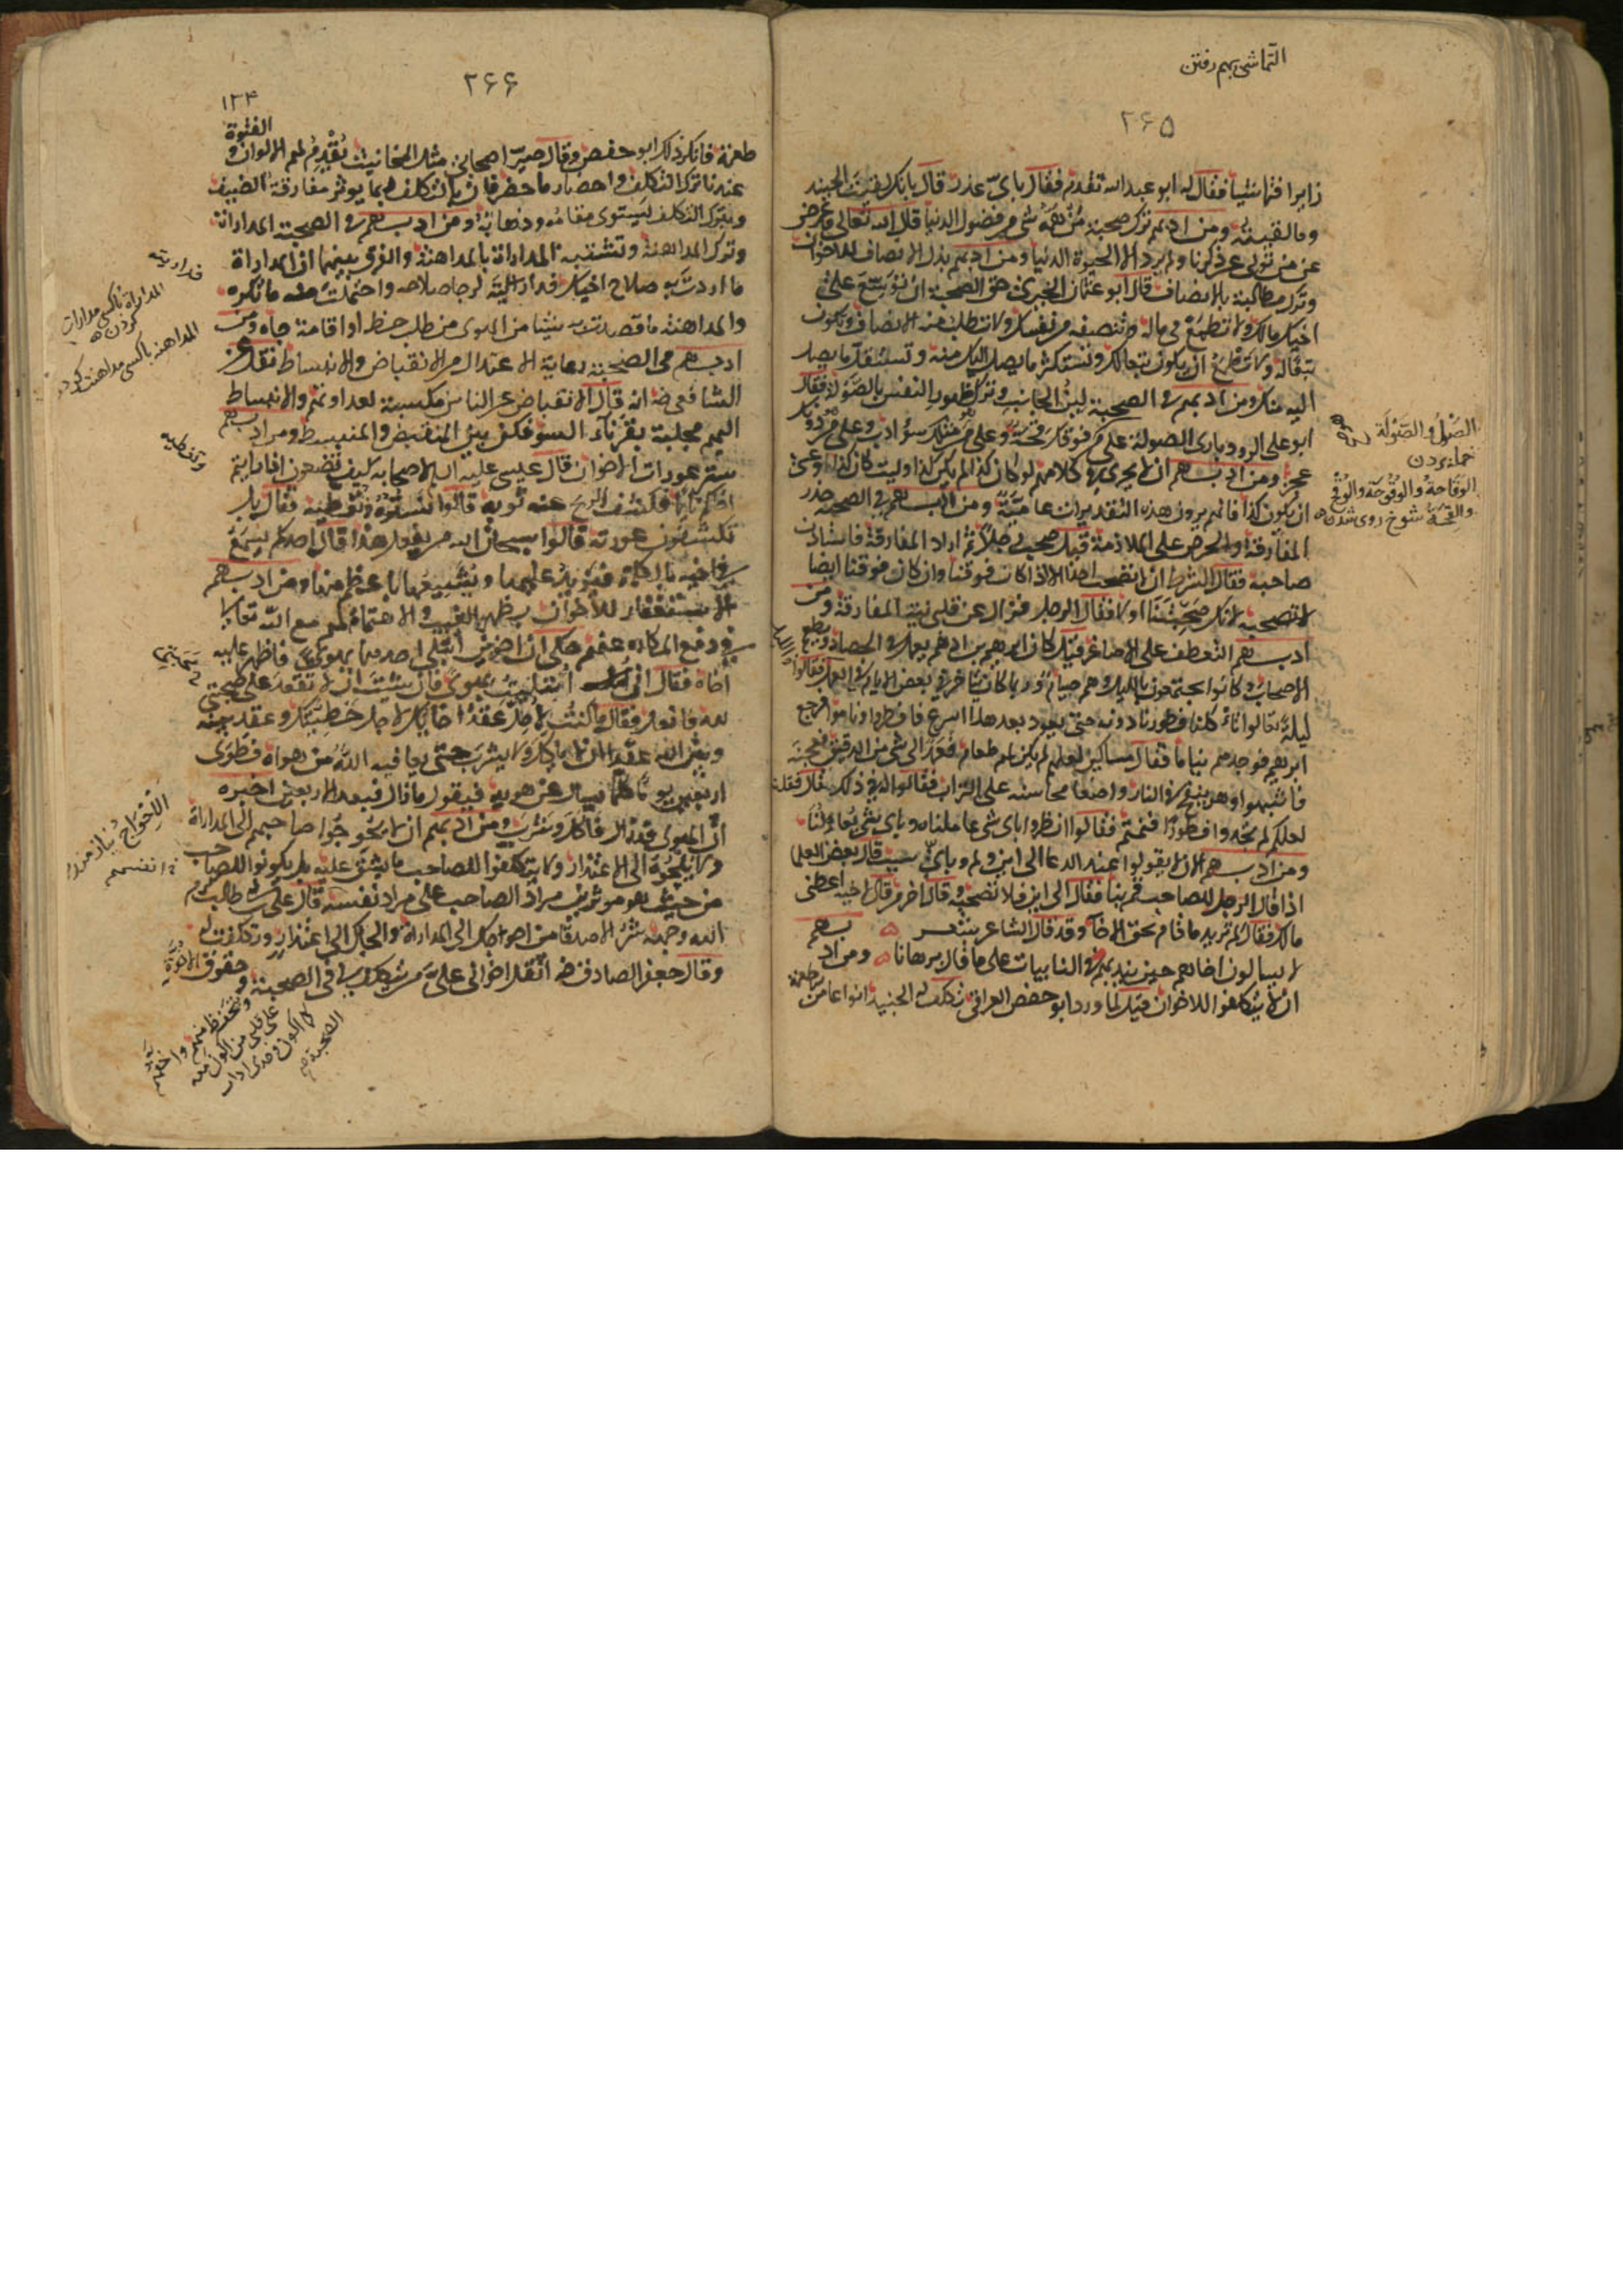 التماشی بهم رفتن
۲۶۵
زايرا فتماشيا فقال له ابو عبد الله تقدم فقال باى عذر قال بانك لقيت الجنيد
وما لقيته ومن ادبهم ترك صحبة من همه شى من فضول الدنيا قال الله تعالى فاعرض
عن من تولى عن ذكرنا ولم يرد الا الحيوة الدنيا ومن ادبهم بذل الانصاف للاخوان
وترك مطالبة الانصاف قال ابو عثمان الحيرى حق الصحبة ان توسع على
اخيك مالك ولا تطمع فى ماله وتنصفه من نفسك ولا تطلب منه الانصاف وتكون
تبعا له ولا تطمع ان يكون تبعا لك وتستكثر ما يصل اليك منه وتستقل ما يصل
اليه منك ومن ادبهم فى الصحبة لين الجانب وترك ظهور النفس بالصولة فقال
ابو على الرودبارى الصولة على من فوقك قحة وعلى من مثلك سوء ادب وعلى من دونك
عجز ومن ادبهم ان لا يجرى فى كلامهم لو كان كذا لم يكن كذا وليت كان كذا وعسى
ان يكون كذا فانهم يرون هذه التقديرات عامية ومن ادبهم فى الصحبة حذر
المفارقة والحرص على الملازمة قيل صحب رجل رجلا ثم اراد المفارقة فاستاذن
صاحبه فقال بشرط ان لا تصحب احدا الا اذا كان فوقنا وان كان فوقنا ايضا
لا تصحبه لانك صحبتنا اولا فقال الرجل زال عن قلبى نية المفارقة ومن
ادبهم التعطف على الاصاغر قيل كان ابرهيم بن ادهم يعمل فى الحصاد ويطعم
الاصحاب وكانوا يجتمعون بالليل وهم صيام وربما كان يتاخر فى بعض الايام فى العمل فقالوا
ليلة تعالوا ناكل فطورنا دونه حتى يعود بعد هذا اسرع فافطروا وناموا فرجع
ابرهيم فوجدهم نياما فقال مساكين لعلهم لم يكن لهم طعام فعمد الى شى من الدقيق فعجنه
فانتبهوا وهو ينفخ فى النار واضعا محاسنه على التراب فقالوا له فى ذلك فقال قلت
لعلكم لم تجدوا فطورا فنمتم فقالوا انظروا باى شى عاملناه وباى شى يعاملنا
ومن ادبهم ان لا يقولوا عند الدعا الى اين ولم وباى سبب قال بعض العلما
اذا قال الرجل للصاحب قم بنا فقال الى اين فلا تصحبه وقال اخر من قال لاخيه اعطنى
مالك فقال كم تريد ما قام بحق الاخا وقد قال الشاعر شعر
لا يسالون اخاهم حين يندبهم فى النايبات على ما قال برهانا ومن ادبهم
ان لا يتكلفوا للاخوان قيل لما ورد ابو حفص العراق تكلف له الجنيد انواعا من الاطعمة
الصول والصولة
حمله بردن
الوقاحة والوقوحة والوقح
والقحة شوخ روى شدن
۲۶۶
۱۳۴
طعمة فانكر ذلك ابو حفص وقال صير اصحابى مثل المخانيث يقدم لهم الالوان و الفتوة
عندنا ترك التكلف واحضار ما حضر فان بالتكلف ربما يوثر مفارقة الضيف
وبترك التكلف يستوى مقامه وذهابه ومن ادبهم فى الصحبة المداراة
وترك المداهنة وتشتبه المداراة بالمداهنة والفرق بينهما ان المداراة
ما اردت به صلاح اخيك فداريته لرجا صلاحه واحتملت منه ما تكره
والمداهنة ما قصدت به شيئا من الهوى من طلب حظ او اقامة جاه ومن
ادبهم فى الصحبة رعاية الاعتدال من الانقباض والانبساط نقل عن
الشافعى رضه انه قال الانقباض عن الناس مكسبة لعداوتهم والانبساط
اليهم مجلبة لقرناء السوء فكن بين المنقبض والمنبسط ومن ادبهم
ستر عورات الاخوان قال عيسى عليه السلام لاصحابه كيف تصنعون اذا رايتم
اخاكم نايما فكشف الريح عنه ثوبه قالوا نستره ونغطيه فقال بل
تكشفون عورته قالوا سبحان الله من يفعل هذا قال احدكم يسمع
فى اخيه بالكلمة فيزيد عليها ويشيعها باعظم منها ومن ادبهم
الاستغفار للاخوان بظهر الغيب والاهتمام لهم مع الله تعالى
فى دفع المكاره عنهم حكى ان اخوين ابتلى احدهما بهوى فاظهر عليه
اخاه فقال انى ابتليت بهوى فان شئت ان لا تقعد على صحبتى
لله فافعل فقال ما كنت لاحل عقد اخايك لاجل خطيئتك وعقد بينه
وبين الله عقدا ان لا ياكل ولا يشرب حتى يعافيه الله من هواه فطوى
اربعين يوما كلما يسال عن هويه فيقول ما زال فبعد الاربعين اخبره
ان الهوى قد زال فاكل وشرب ومن ادبهم ان لا يحوجوا صاحبهم الى المداراة
ولا يلجوه الى الاعتذار ولا يتكلفوا للصاحب ما يشق عليه بل يكونوا للصاحب
من حيث هو موثرين مراد الصاحب على مراد نفسه قال على بن ابى طالب كرم
الله وجهه شر الاصدقا من احوجك الى المداراة والجاك الى اعتذار وتكلفت له
وقال جعفر الصادق رضه اثقل اخوانى على من يتكلف لى فى الصحبة و حقوق الاخوة
المداراة باكسى مدارات كردن
المداهنة باكسى مداهنت كردن
واتحفظ منهم واخفهم
على قلبى من اكون معه
كما اكون وحدى اداب
الصحبة